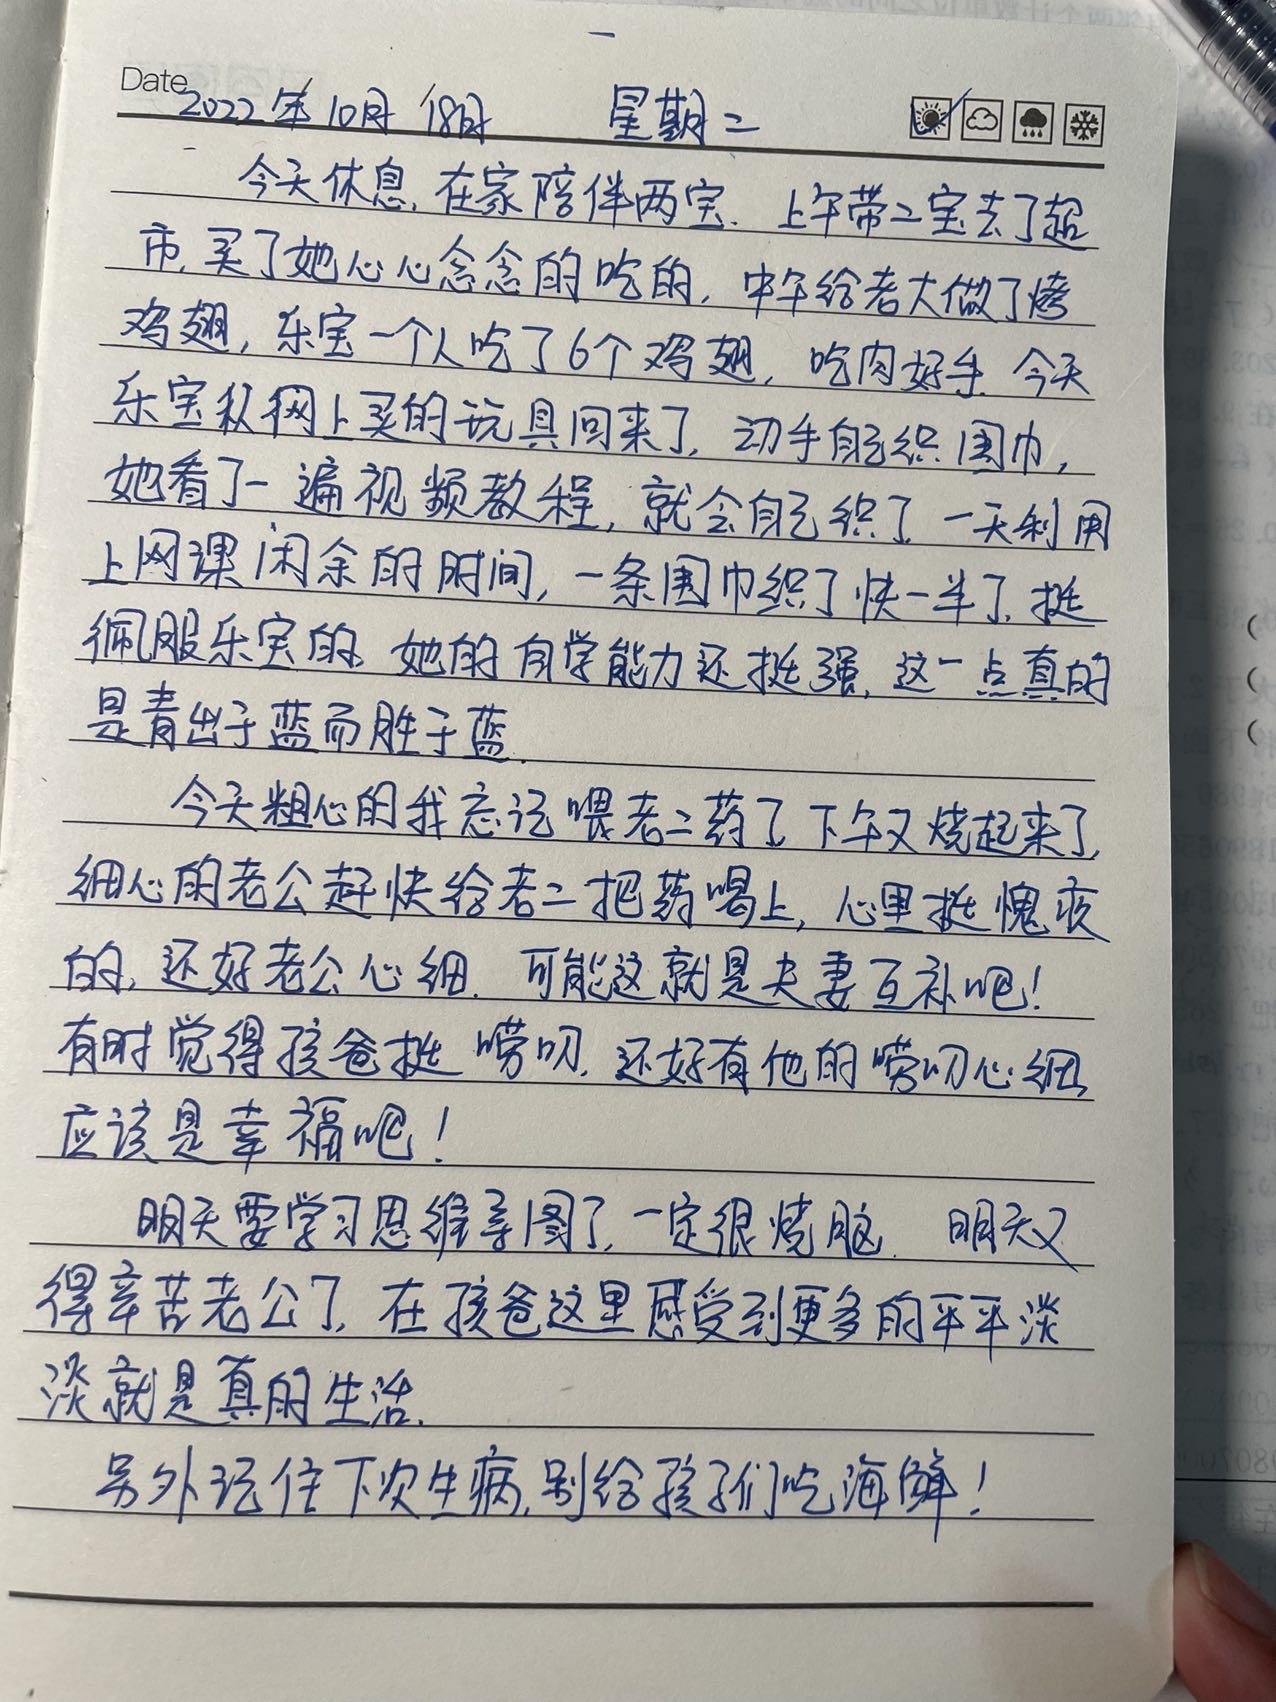 Date 2022年10月18日 星期二
今天休息,在家陪伴两宝. 上午带二宝去了超
市,买了她心心念念的吃的,中午给老大做了烤
鸡翅,乐宝一个人吃了6个鸡翅,吃肉好手.今天
乐宝从网上买的玩具回来了,动手自己织围巾,
她看了一遍视频教程,就会自己织了.一天利用
上网课闲余的时间,一条围巾织了快一半了.挺
佩服乐宝的.她的自学能力还挺强,这一点真的
是青出于蓝而胜于蓝.
今天粗心的我忘记喂老二药了.下午又烧起来了,
细心的老公赶快给老二把药喝上,心里挺愧疚
的,还好老公心细.可能这就是夫妻互补吧!
有时觉得孩爸挺唠叨.还好有他的唠叨心细,
应该是幸福吧!
明天要学习思维导图了,一定很烧脑. 明天又
得辛苦老公了,在孩爸这里感受到更多的平平淡
淡就是真的生活.
另外记住下次生病,别给孩子们吃海鲜!